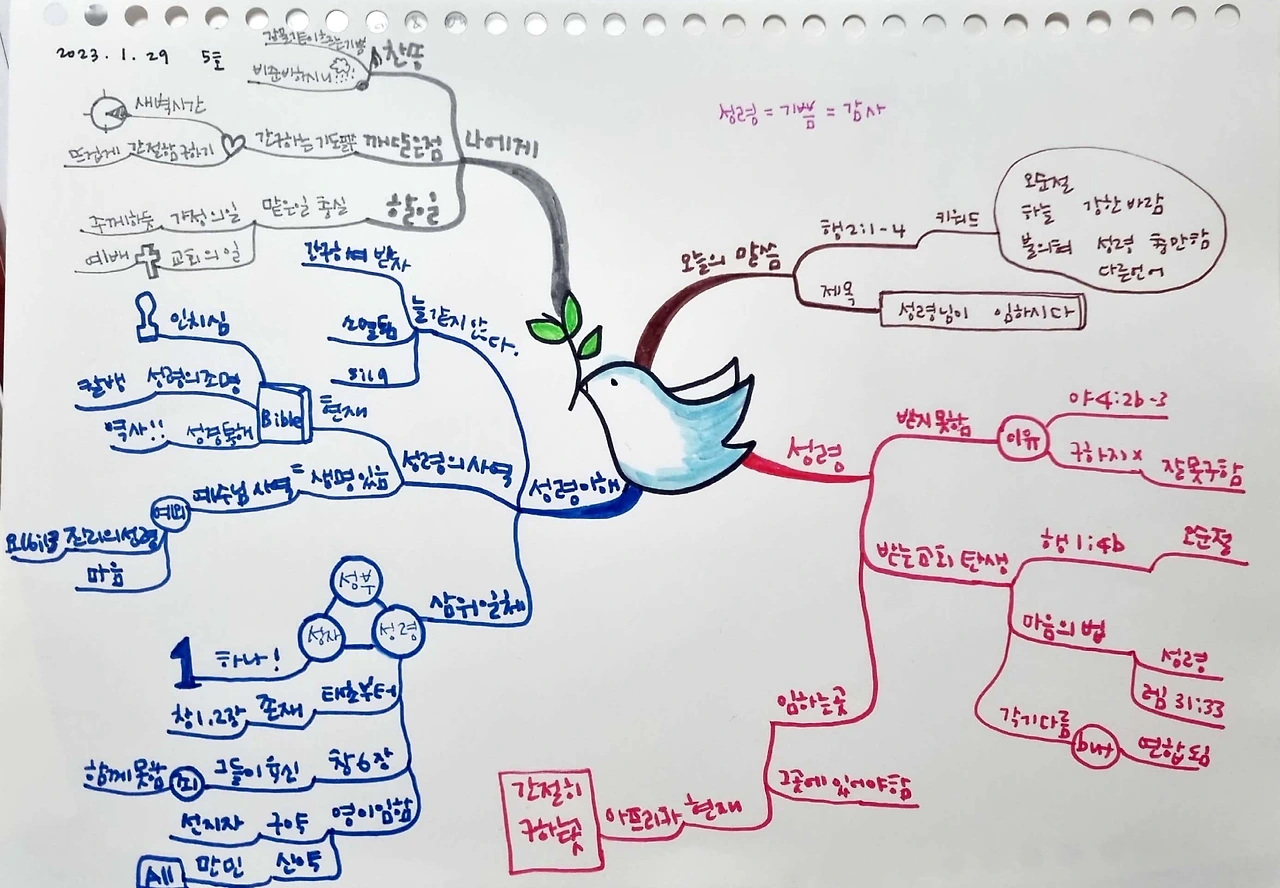 2023.1.29 5호
찬송
비준비하시니
새벽시간
뜨겁게 간절함 구하기
간구하는 기도
깨달은점
나에게
주께하듯 가정의 일
맡은일 충실
할일
예배 교회의 일
성령 = 기쁨 = 감사
오늘의 말씀
행2:1-4
키워드
오순절
하늘 강한 바람
불의혀 성령 충만함
다른언어
제목
성령님이 임하시다
간구하여 받자
소멸됨
늘 같지 않다.
인치심
칼뱅 성령의조명
역사!! 성경통해
Bible
현재
성령의 사역
성령이해
예수님 사역 = 생명있음
예외
진리의성령
마음
삼위일체
성부
성자
성령
1 하나!
창1.2장 존재 태초부터
함께 못함 죄 그들이 육신 창6장
선지자 구약 영이임함
All 만민 신약
성령
받지못함
이유
야4:2b-3
구하지x 잘못구함
받는교회 탄생
행1:4b 오순절
마음의 법
성령
렘31:33
각기다름 but 연합됨
임하는곳
그곳에 있어야함
간절히
구하는곳
아프리카 현재